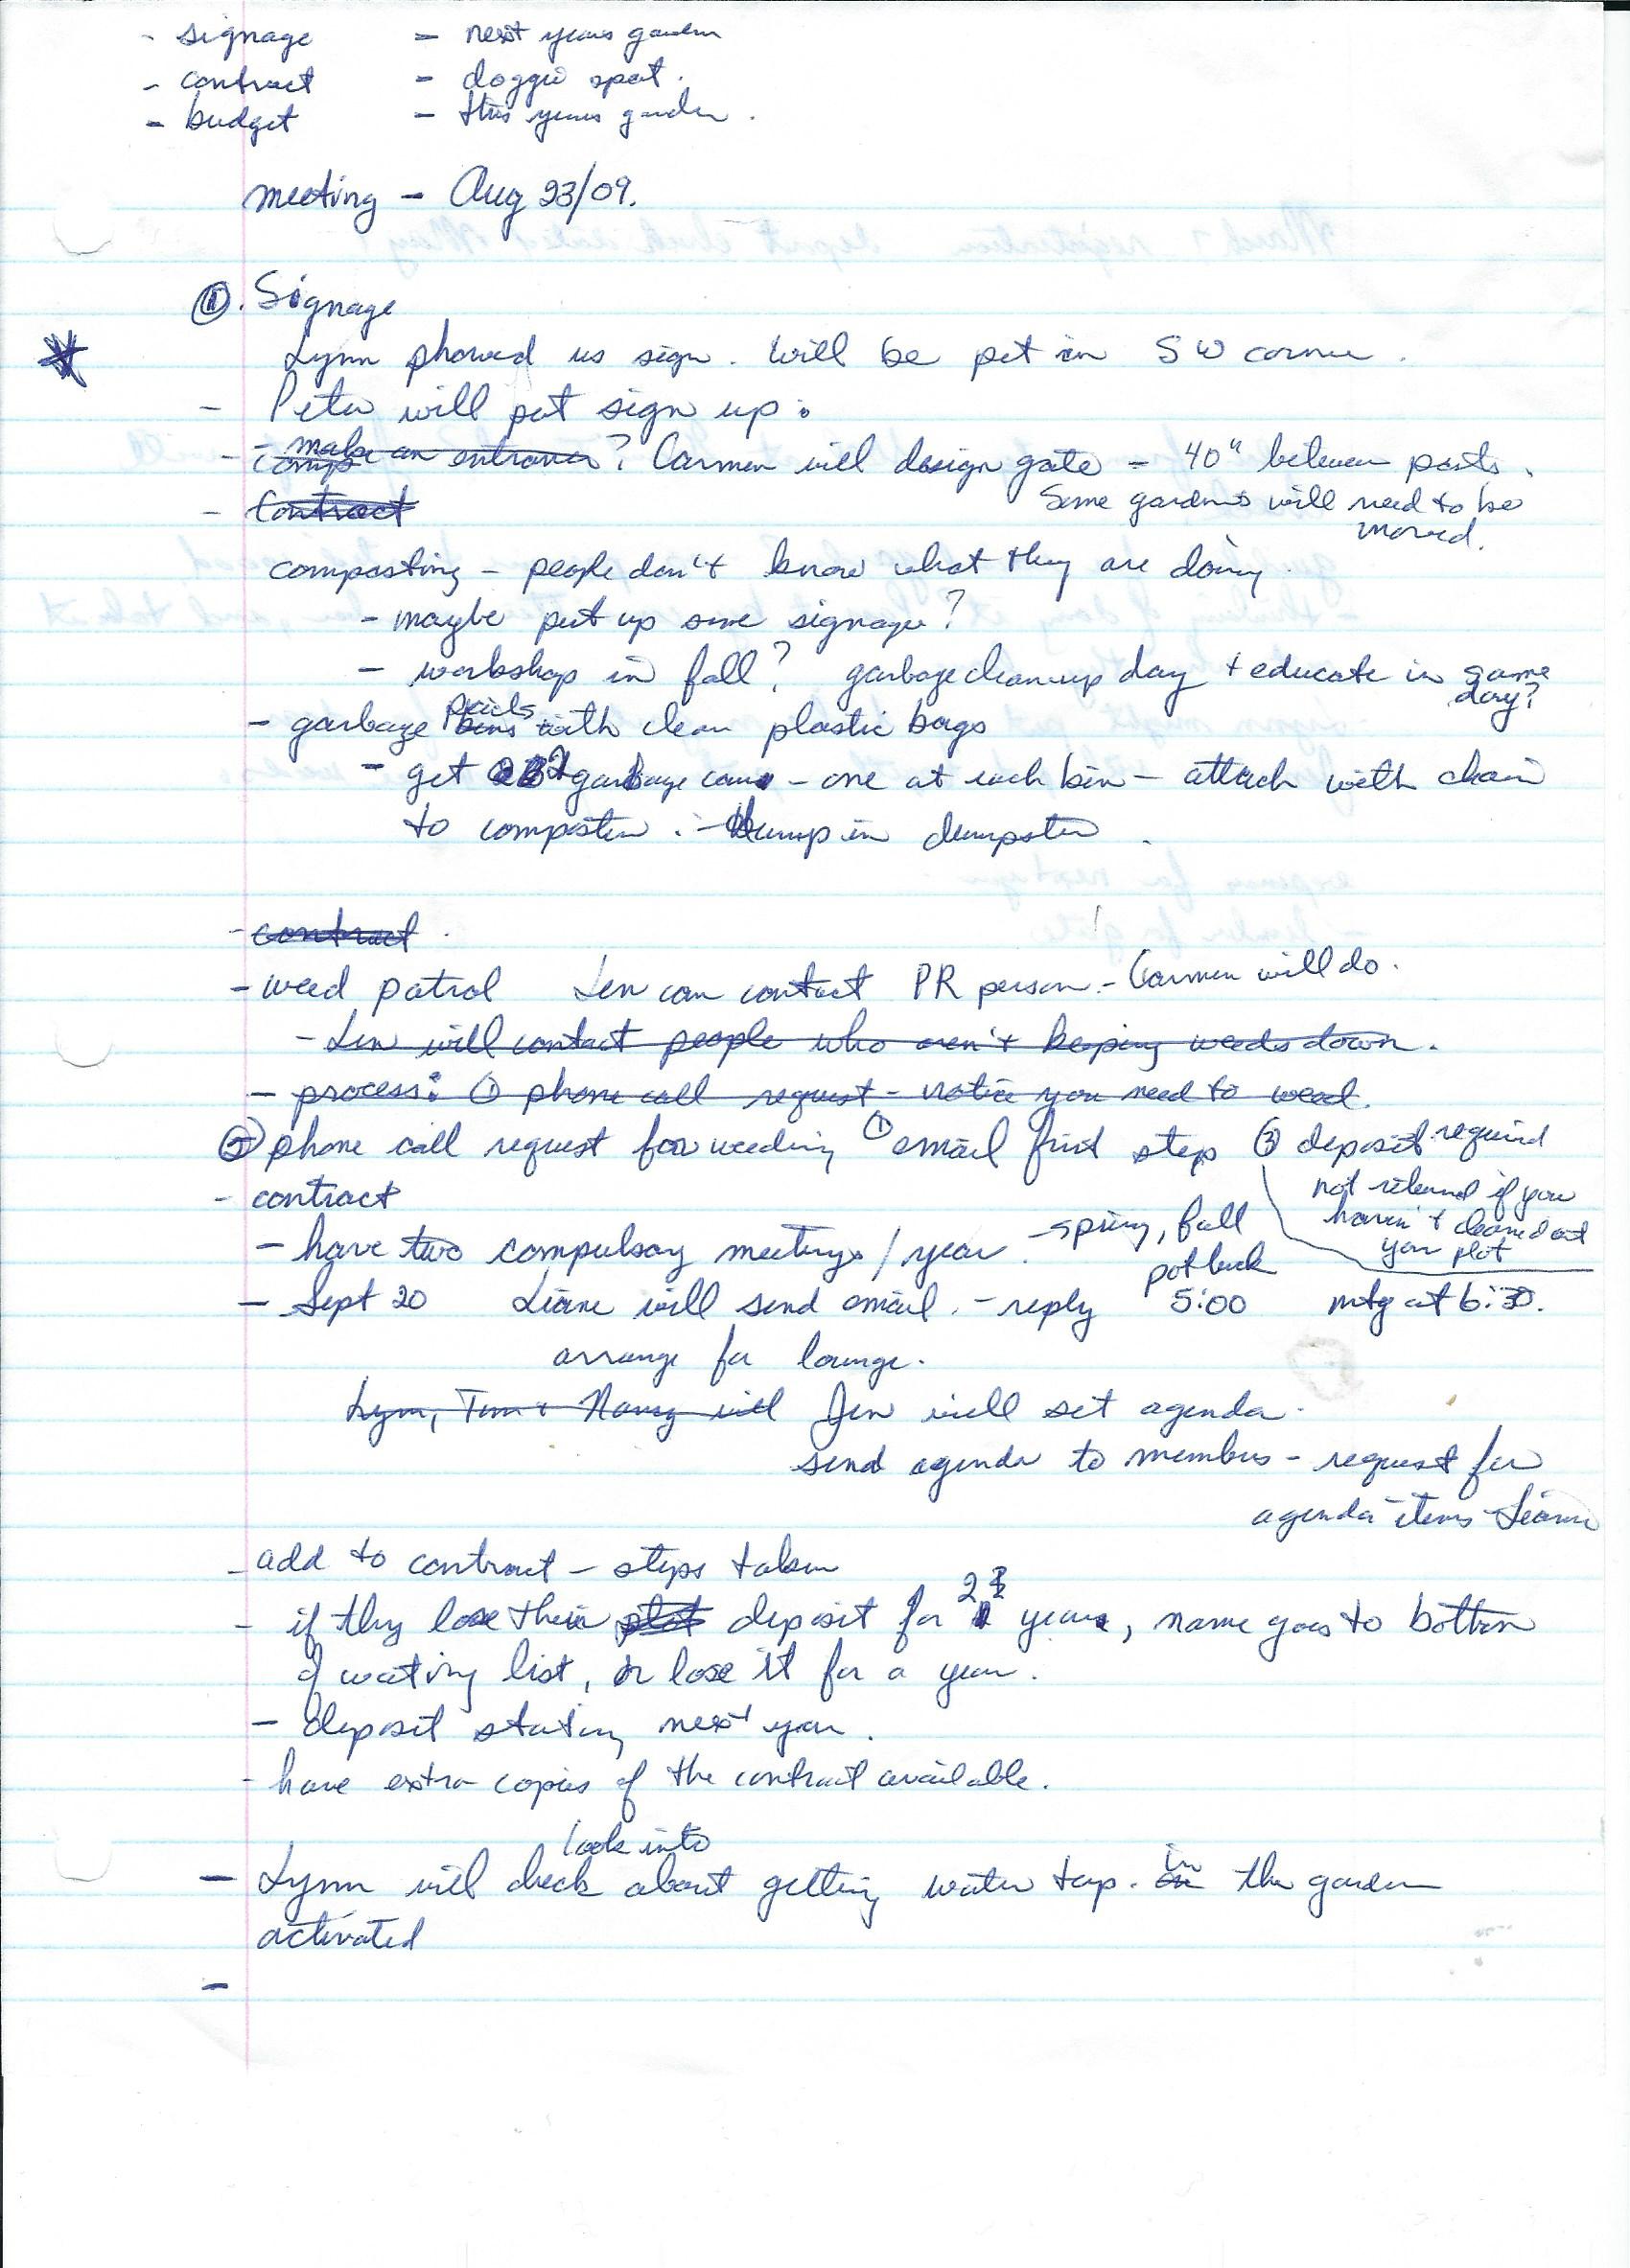 - signage - next years garden
- contract - doggie spot.
- budget - this years garden.
meeting - Aug 23/09.
①. Signage
Lynn showed us sign. Will be put in SW corner.
- Peter will put sign up.
- make an entrance? Carmen will design gate - 40" between posts.
- Contract Some gardens will need to be
moved.
composting - people don't know what they are doing.
- maybe put up some signage?
- workshop in fall? garbage cleanup day + educate in same
day?
pails
- garbage bins with clean plastic bags
- get 2 garbage cans - one at each bin - attach with chain
to composter. - dump in dumpster.
- contract.
- weed patrol Len can contact PR person. - Carmen will do.
- Len will contact people who aren't keeping weeds down.
- process: ① phone call request - notice you need to weed.
② phone call request for weeding ① email first step ③ deposit required
not returned if you
haven't cleaned out
your plot
- contract
- have two compulsory meetings/year - spring, fall
potluck
- Sept 20 Liane will send email. - reply 5:00 mtg at 6:30.
arrange for lounge.
Lynn, Tom + Nancy will Jen will set agenda.
send agenda to members - request for
agenda items - Liane
- add to contract - steps taken
- if they lose their plot deposit for 2 years, name goes to bottom
of waiting list, or lose it for a year.
- deposit starting next year.
- have extra copies of the contract available.
look into
- Lynn will check about getting water tap. in the garden
activated
-